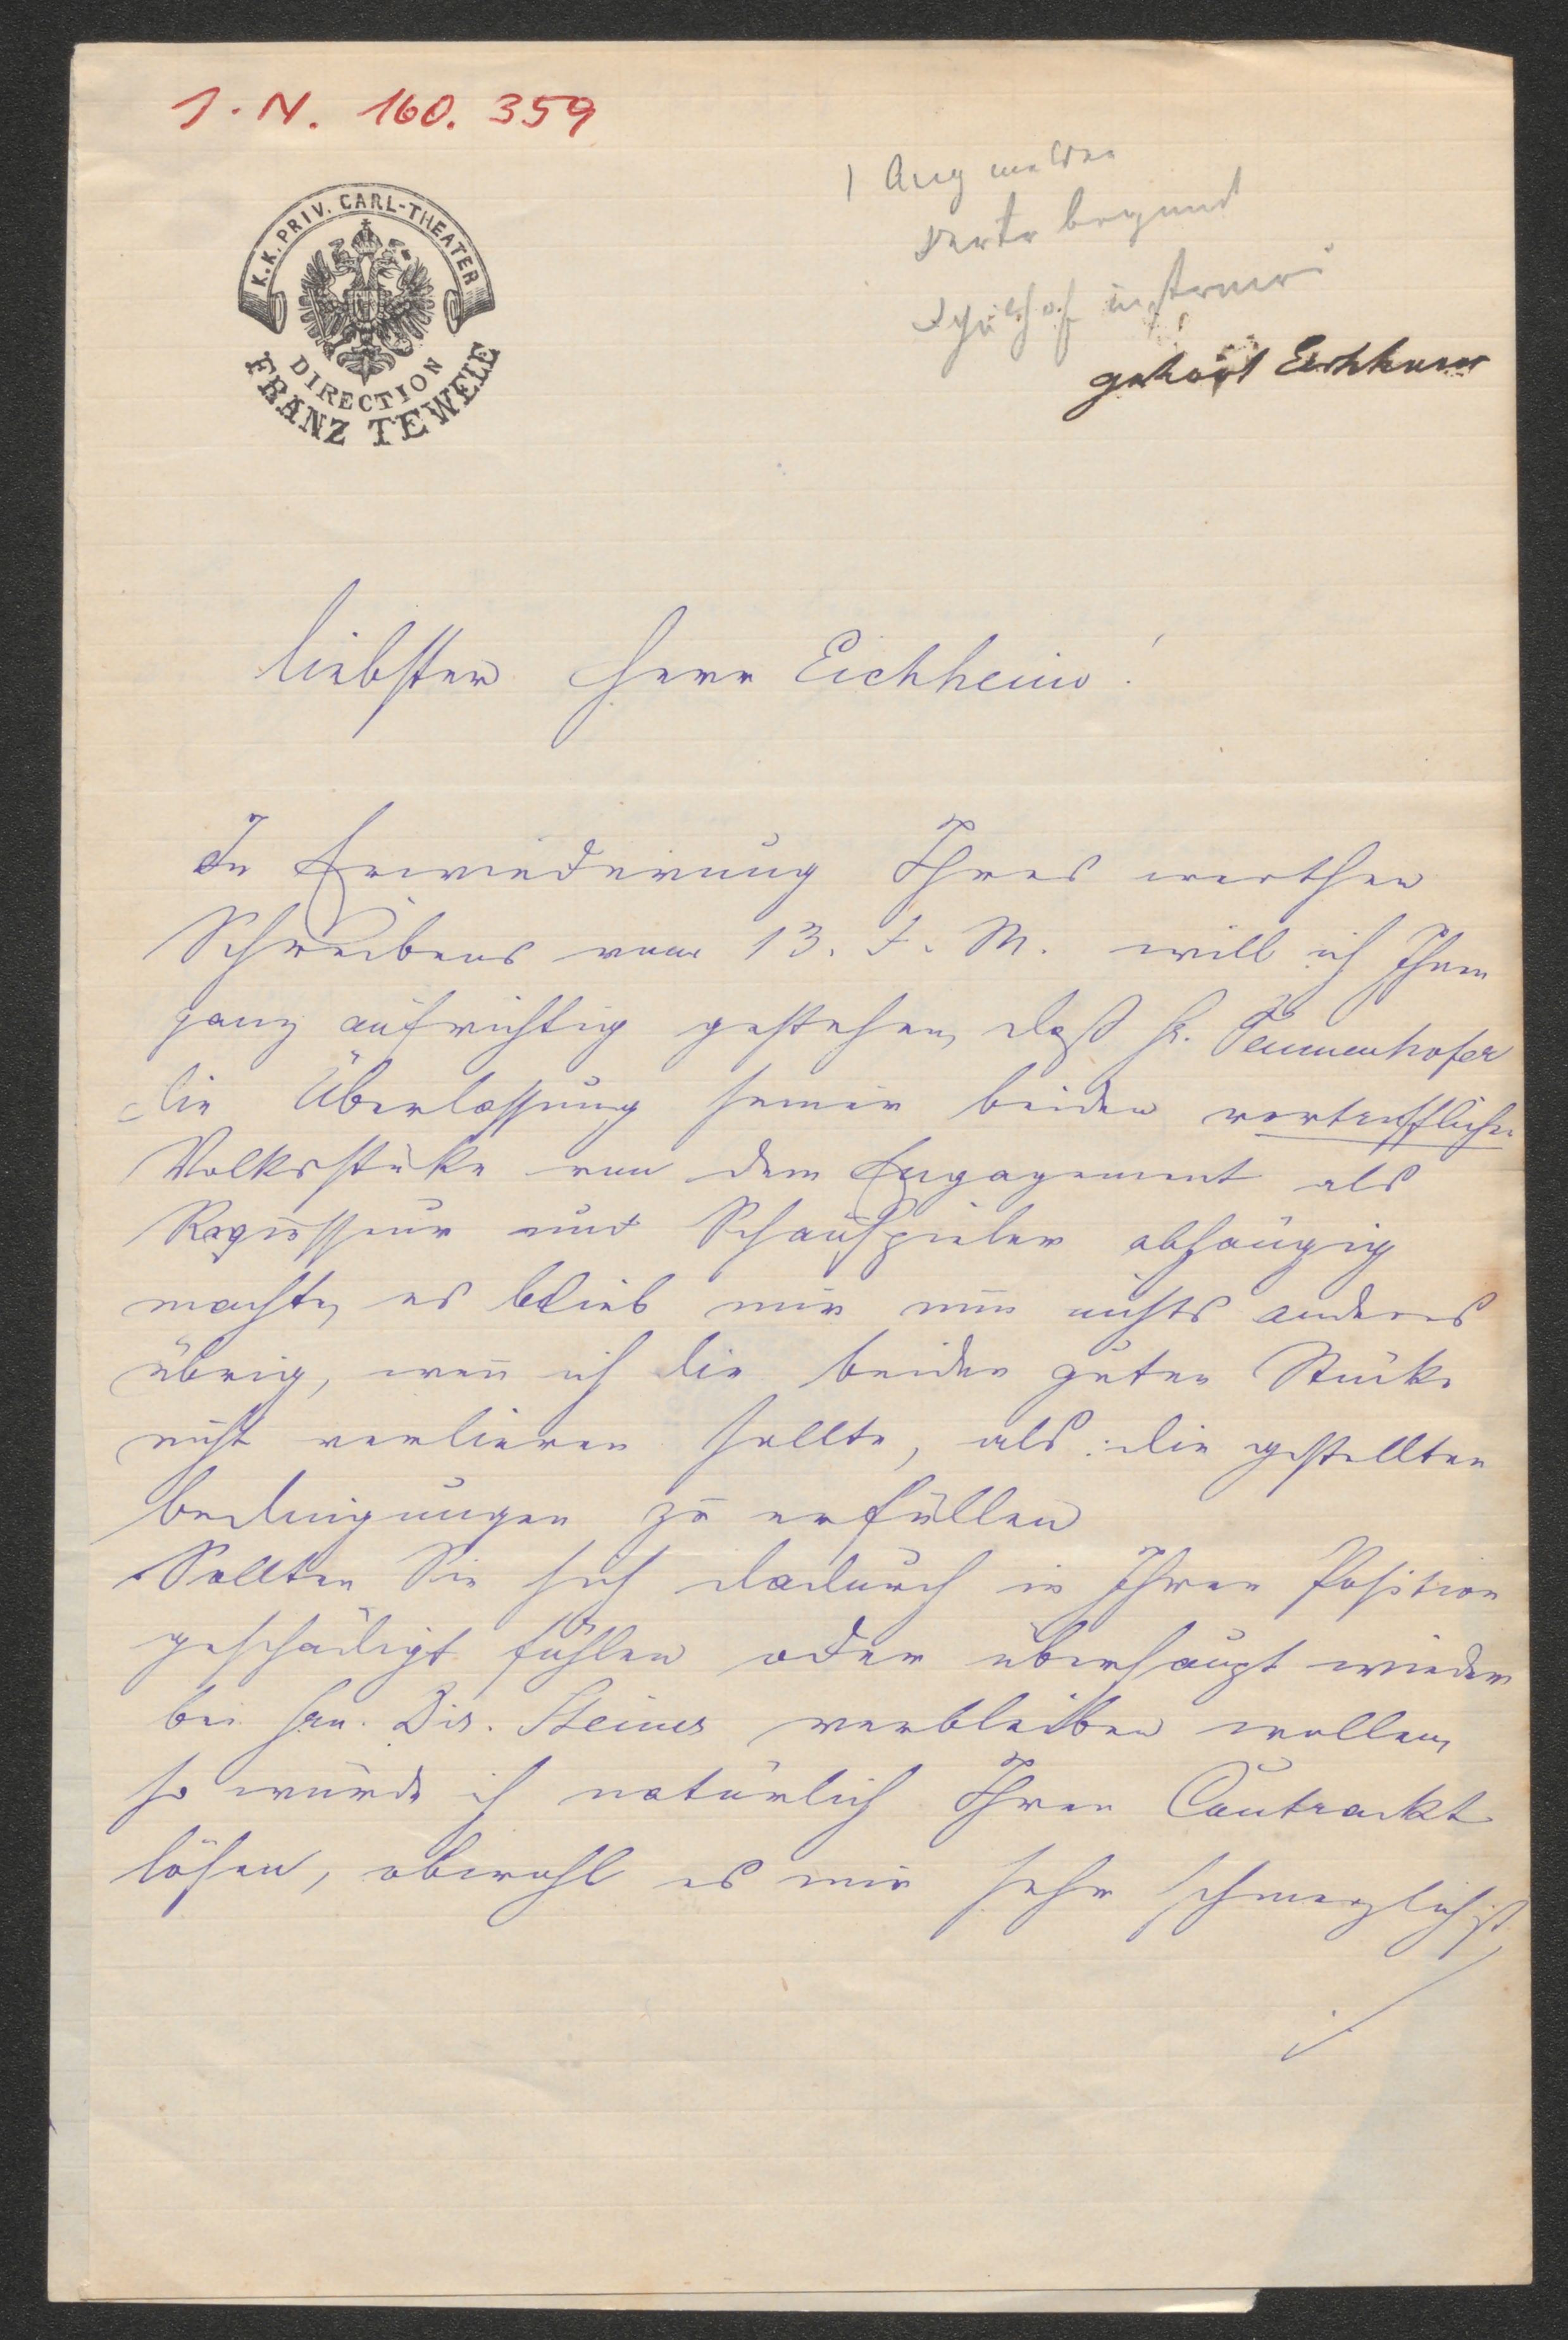 J. N. 160. 359
1 Aug
K. K. PRIV. CARL-THEATER
DIRECTION
FRANZ TEWELE
gehört Eichheim
liebster Herr Eichheim!
In Erwiederung Ihres werthen
Schreibens vom 13. d. M. will ich Ihnen
ganz aufrichtig gestehen, daß H.
die Überlassung seiner beiden vortrefflichen
Volksstücke von dem Engagement als
Regisseur und Schauspieler abhängig
machte, es blieb mir nun nichts anderes
übrig, wenn ich die beiden guten Stücke
nicht verlieren sollte, als die gestellten
bedingungen zu erfüllen
Sollten Sie sich dadurch in Ihrer Position
geschädigt fühlen oder überhaupt wieder
bei Hrn. Dir. Steiner verbleiben wollen,
so würde ich natürlich Ihren Contrackt
lösen, obwohl es mir sehr schmerzlich ist